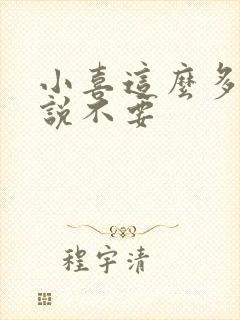 小喜這麼多
說不要
程宇清